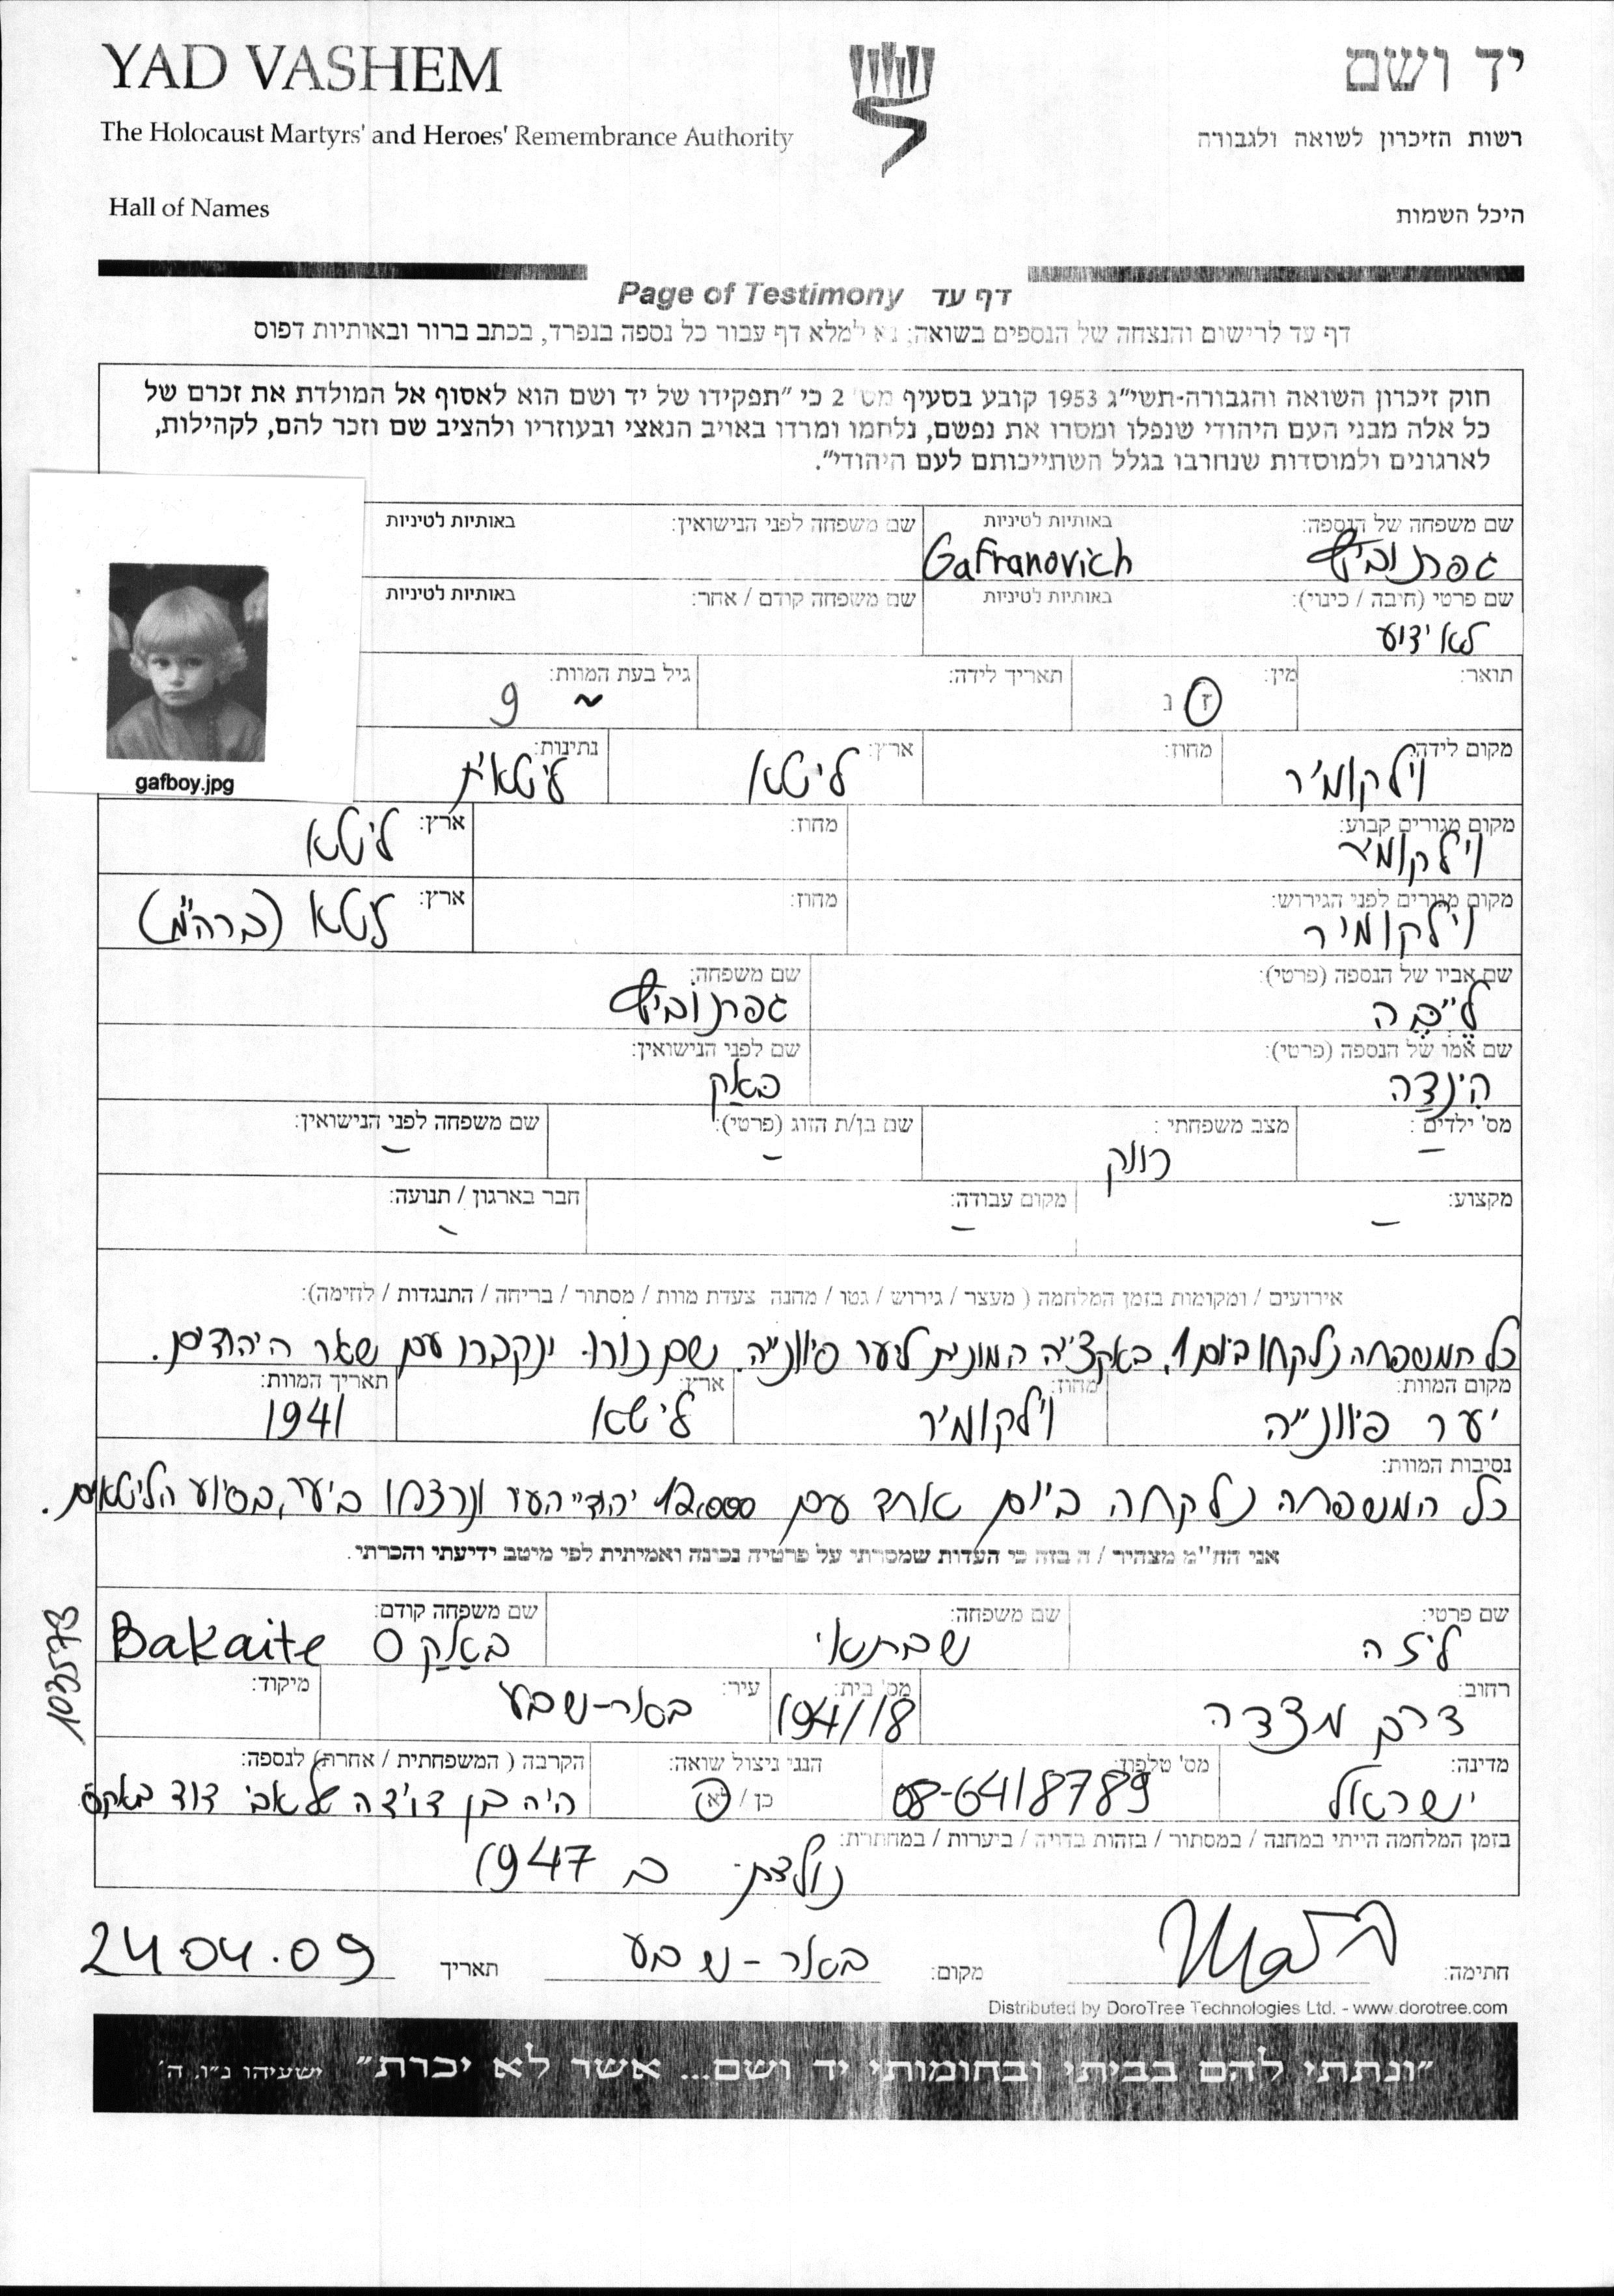 YAD VASHEM
יד ושם
The Holocaust Martyrs' and Heroes' Remembrance Authority
רשות הזיכרון לשואה ולגבורה
Hall of Names
היכל השמות
Page of Testimony דף עד
דף עד לרישום והנצחה של הנספים בשואה; נא למלא דף עבור כל נספה בנפרד, בכתב ברור ובאותיות דפוס
חוק זיכרון השואה והגבורה-תשי"ג 1953 קובע בסעיף מס' 2 כי "תפקידו של יד ושם הוא לאסוף אל המולדת את זכרם של
כל אלה מבני העם היהודי שנפלו ומסרו את נפשם, נלחמו ומרדו באויב הנאצי ובעוזריו ולהציב שם וזכר להם, לקהילות,
לארגונים ולמוסדות שנחרבו בגלל השתייכותם לעם היהודי".
שם משפחה של הנספה: באותיות לטיניות שם משפחה לפני הנישואין: באותיות לטיניות
גפרנוביץ Gafranovich
שם פרטי (חיבה / כינוי): באותיות לטיניות שם משפחה קודם / אחר: באותיות לטיניות
לא ידוע
תואר: מין: ז נ תאריך לידה: גיל בעת המוות:
~ 9
מקום לידה: מחוז: ארץ: נתינות:
וילקומיר ליטא ליטאית
gafboy.jpg
מקום מגורים קבוע: מחוז: ארץ:
וילקומיר ליטא
מקום מגורים לפני הגירוש: מחוז: ארץ:
וילקומיר ליטא (ברה"מ)
שם אביו של הנספה (פרטי): שם משפחה:
לייבה גפרנוביץ
שם אמו של הנספה (פרטי): שם לפני הנישואין:
הינדה באק
מס' ילדים: מצב משפחתי: שם בן/ת הזוג (פרטי): שם משפחה לפני הנישואין:
– רווק – –
מקצוע: מקום עבודה: חבר בארגון / תנועה:
– – –
אירועים / ומקומות בזמן המלחמה ( מעצר / גירוש / גטו / מחנה צעדת מוות / מסתור / בריחה / התנגדות / לחימה):
כל המשפחה נלקחו ביום 1, באקציה המונית ליער פיוונייה. שם נורו ונקברו עם שאר היהודים.
מקום המוות: מחוז: ארץ: תאריך המוות:
יער פיוונייה וילקומיר ליטא 1941
נסיבות המוות:
כל המשפחה נלקחה ביום אחד עם 12.000 יהודיי העיר ונרצחו ביער, בסיוע הליטאים.
אני הח"מ מצהיר / ה בזה כי העדות שמסרתי על פרטיה נכונה ואמיתית לפי מיטב ידיעתי והכרתי.
שם פרטי: שם משפחה: שם משפחה קודם:
ליזה שבתאי באקס Bakaite
רחוב: מס' בית: עיר: מיקוד:
דרך מצדה 194/18 באר-שבע
מדינה: מס' טלפון: הנני ניצול שואה: הקרבה ( המשפחתית / אחרת) לנספה:
ישראל 08-6418789 כן / לא היה בן דודה של אבי דוד באקס
בזמן המלחמה הייתי במחנה / במסתור / בזהות בדויה / ביערות / במחתרת:
נולדתי ב 1947
חתימה: מקום: באר-שבע תאריך 24.04.09
Distributed by DoroTree Technologies Ltd. - www.dorotree.com
"ונתתי להם בביתי ובחומותי יד ושם... אשר לא יכרת" ישעיהו נ"ו, ה'
103573